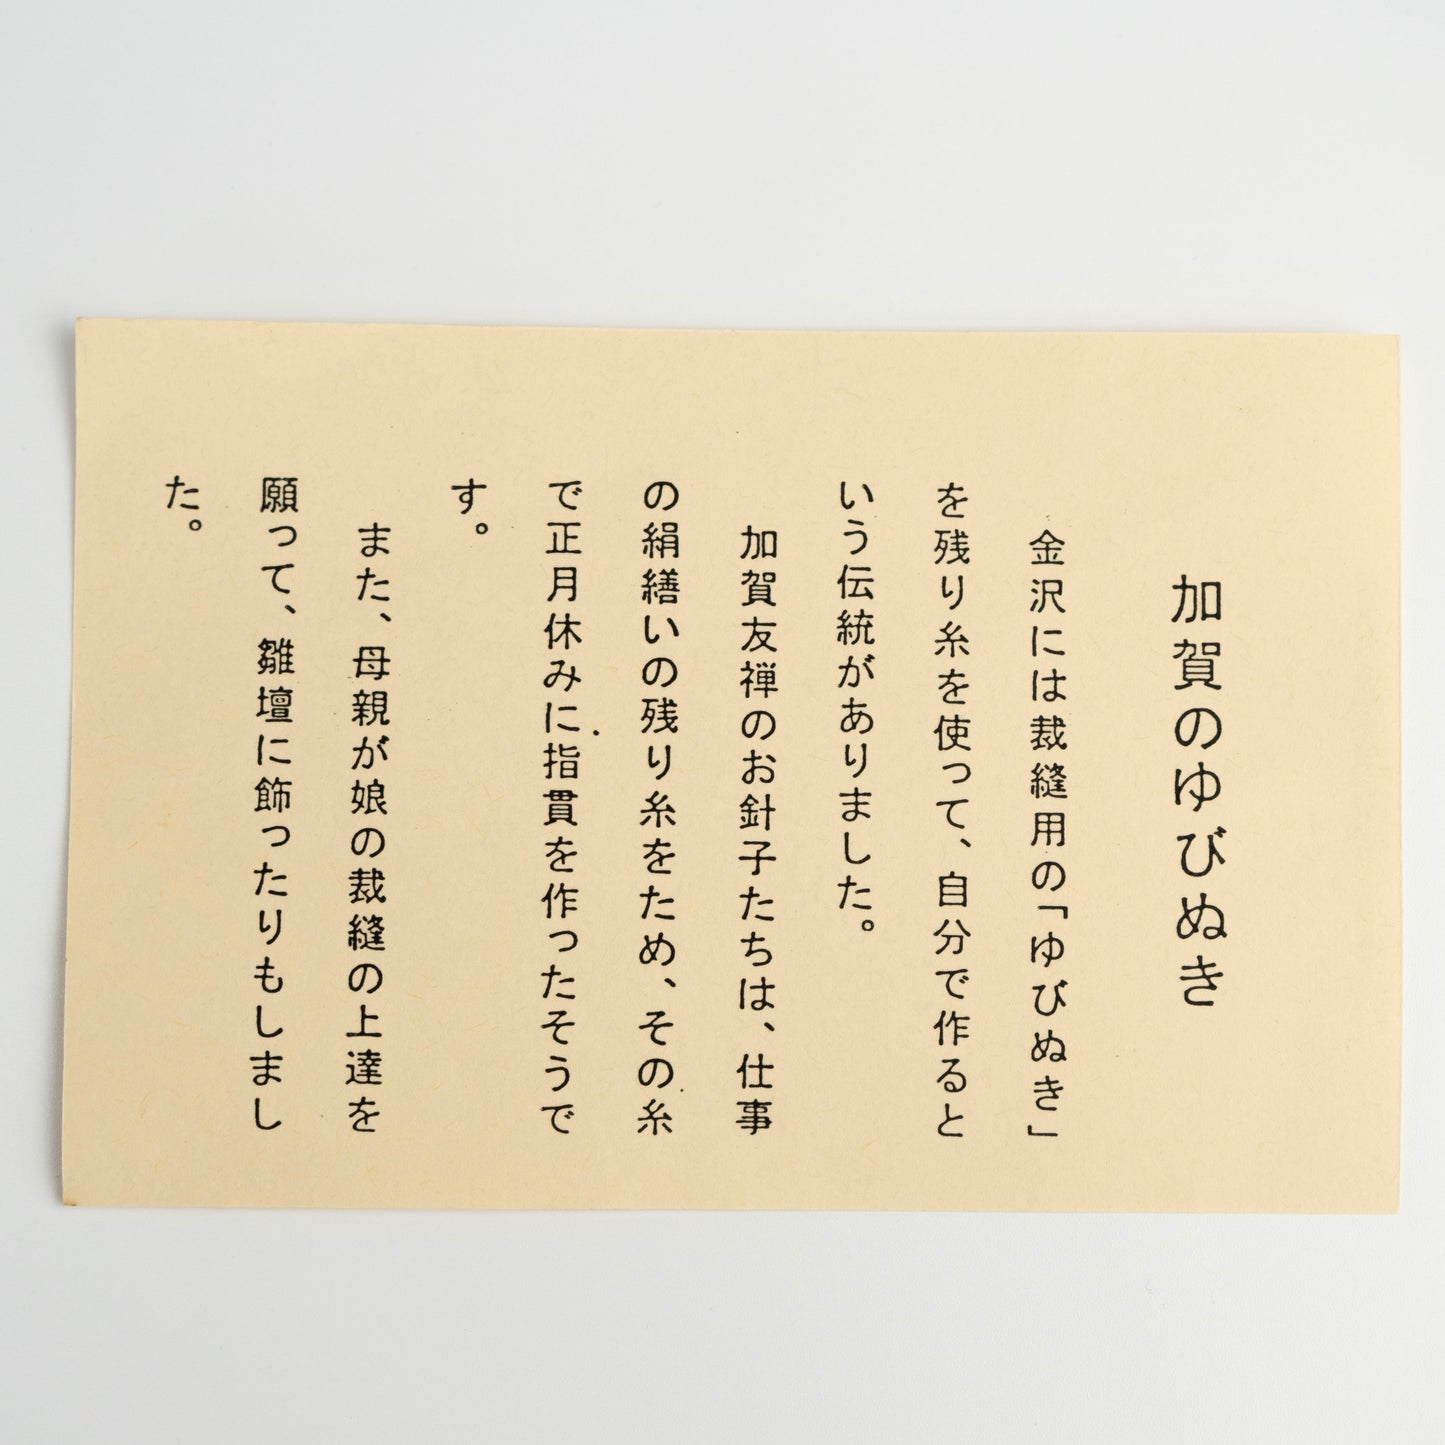 加賀のゆびぬき
金沢には裁縫用の「ゆびぬき」
を残り糸を使って、自分で作ると
いう伝統がありました。
加賀友禅のお針子たちは、仕事
の絹繕いの残り糸をため、その糸
で正月休みに指貫を作ったそうで
す。
また、母親が娘の裁縫の上達を
願って、雛壇に飾ったりもしまし
た。